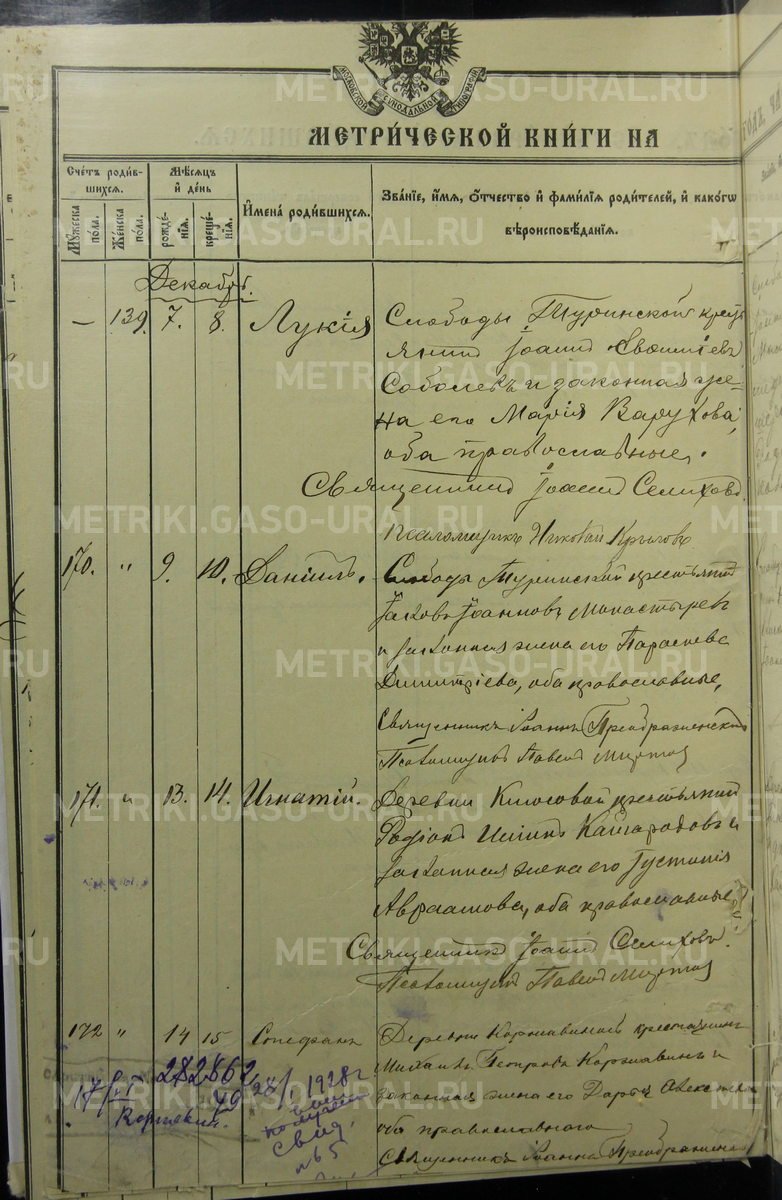 МОСКОВСКОЙ СИНОДАЛЬНОЙ ТИПОГРАФІИ
METRIKI.GASO-URAL.RU
МЕТРИ́ЧЕСКОЙ КНИ́ГИ НА
Сче́тъ роди́в-
шихся.
Мѣ́сяцъ
и҆ де́нь
И҆мена̀ роди́вшихся.
Зва́нїе, и҆́мя, ѻ҆́тчество и҆ фами́лїя роди́телей, и҆ како́гѡ
вѣроисповѣ́данїя.
Мꙋ́жеска
по́ла.
Же́нска
по́ла.
рожде́-
нїя.
креще́-
нїя.
Декабрь.
— 139. 7. 8. Лукія Слободы Туринской крестья
янинъ Іоаннъ
Соболевъ и законная же-
на его Марія Варухова,
оба православные.
Священникъ Іоаннъ Селиховъ
Псаломщикъ Николай Крыловъ
170. " 9. 10. Даніилъ. Слободы Туринской крестьянинъ
Іаковъ Іоанновъ Монастыревъ
и законная жена его Параскева
Димитріева, оба православные,
Священникъ Іоаннъ Преображенскій
Псаломщикъ Павелъ
171. " 13. 14. Игнатій. Деревни крестьянинъ
Родіонъ Кайгородовъ и
законная жена его Іустинія
Авраамова, оба православные
Священникъ Іоаннъ Селиховъ.
Псаломщикъ Павелъ
172 " 14 15 Стефанъ Деревни Коржавиной крестьянинъ
Михаилъ Петровъ Коржавинъ и
законная жена его Дарья
оба православного
Священникъ Іоаннъ Преображенскій
282862
28/I 1928 г
Свид.
№ 65